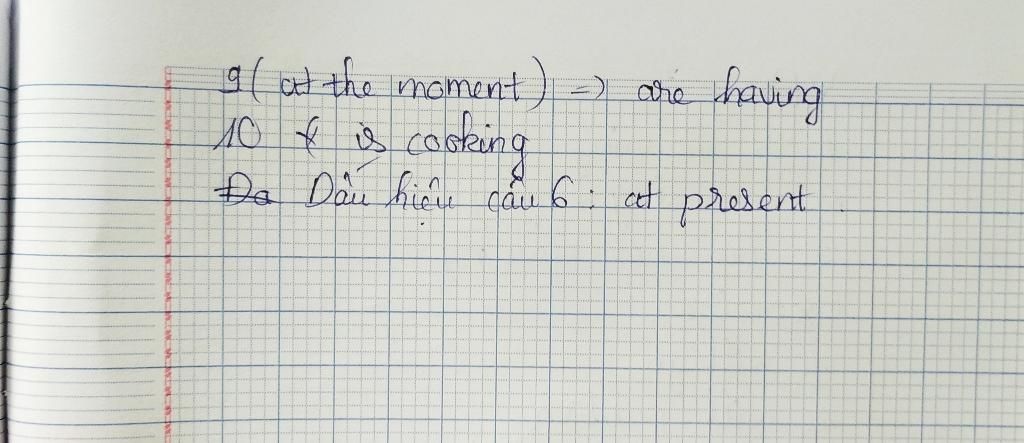 9 ( at the moment ) => are having
10 is cooking
Dấu hiệu câu 6 : at present .